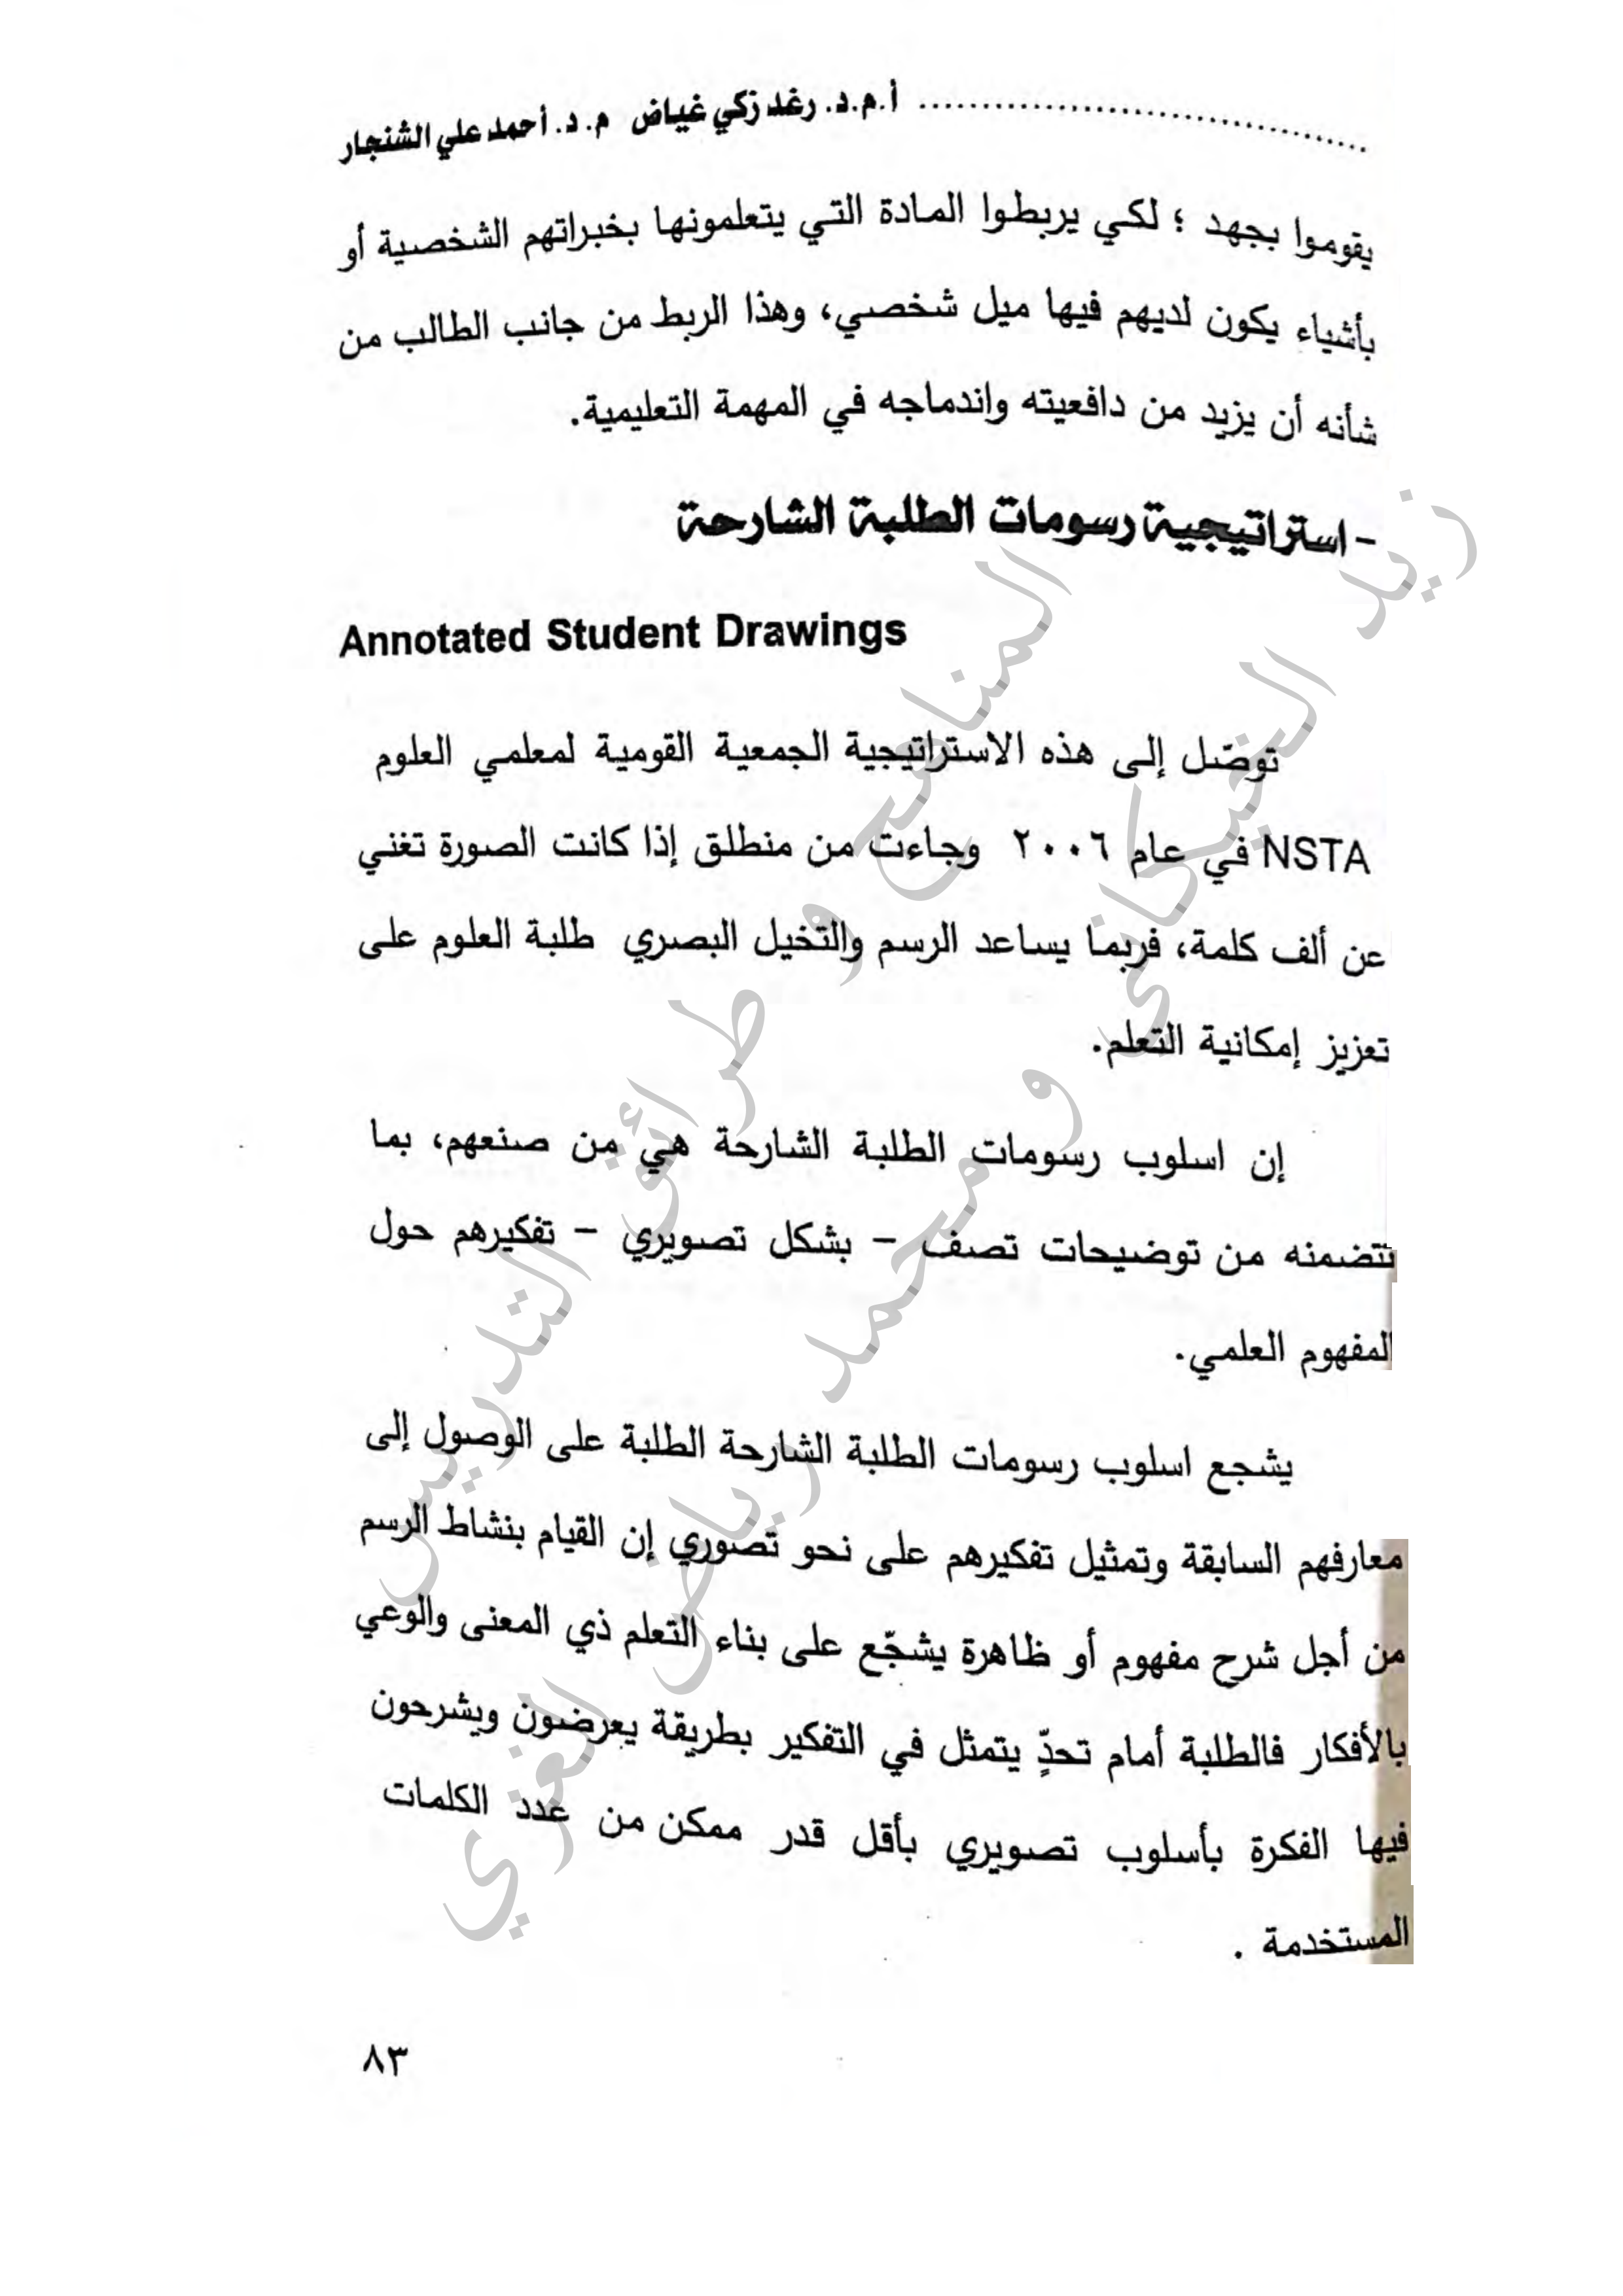 أ.م.د. رغد زكي غياض م. د. أحمد علي الشنجار
يقوموا بجهد ؛ لكي يربطوا المادة التي يتعلمونها بخبراتهم الشخصية أو
بأشياء يكون لديهم فيها ميل شخصي، وهذا الربط من جانب الطالب من
شأنه أن يزيد من دافعيته واندماجه في المهمة التعليمية.
- استراتيجية رسومات الطلبة الشارحة
Annotated Student Drawings
توصّل إلى هذه الاستراتيجية الجمعية القومية لمعلمي العلوم
NSTA في عام ٢٠٠٦ وجاءت من منطلق إذا كانت الصورة تغني
عن ألف كلمة، فربما يساعد الرسم والتخيل البصري طلبة العلوم على
تعزيز إمكانية التعلم.
إن اسلوب رسومات الطلبة الشارحة هي من صنعهم، بما
تتضمنه من توضيحات تصف – بشكل تصويري – تفكيرهم حول
المفهوم العلمي.
يشجع اسلوب رسومات الطلبة الشارحة الطلبة على الوصول إلى
معارفهم السابقة وتمثيل تفكيرهم على نحو تصوري إن القيام بنشاط الرسم
من أجل شرح مفهوم أو ظاهرة يشجّع على بناء التعلم ذي المعنى والوعي
بالأفكار فالطلبة أمام تحدٍّ يتمثل في التفكير بطريقة يعرضون ويشرحون
فيها الفكرة بأسلوب تصويري بأقل قدر ممكن من عدد الكلمات
المستخدمة .
٨٣
المناهج و طرائق التدريس
زيد الخيكاني و محمد رياض الغزي